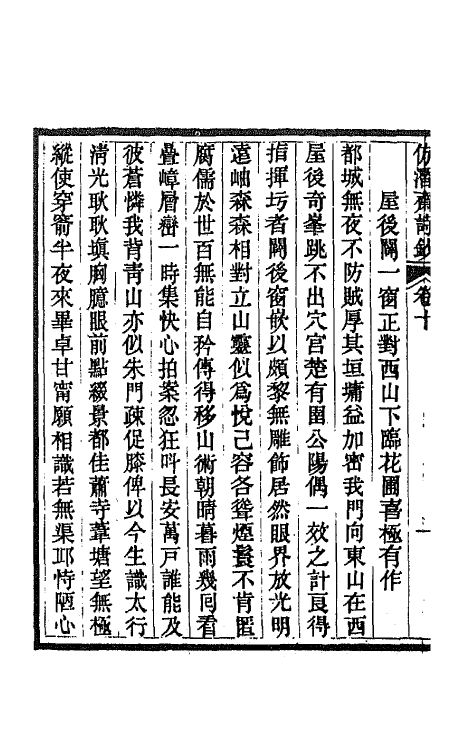 仿潛齋詩鈔 卷十
屋後闢一窗正對西山下臨花圃喜極有作
都城無夜不防賊厚其垣墉益加密我門向東山在西
屋後奇峯跳不出穴宮楚有圉公陽偶一效之計良得
指揮圬者闢後窗嵌以頗黎無雕飾居然眼界放光明
遠岫森森相對立山靈似爲悅己容各聳煙鬟不肯匿
腐儒於世百無能自矜傳得移山術朝晴暮雨幾囘看
疊嶂層巒一時集快心拍案忽狂呌長安萬戸誰能及
彼蒼憐我背靑山亦似朱門疎促膝俾以今生識太行
淸光耿耿塡胸臆眼前點綴景都佳蕭寺葦塘望無極
縱使穿窬半夜來畢卓甘甯願相識若無渠邛恃陋心